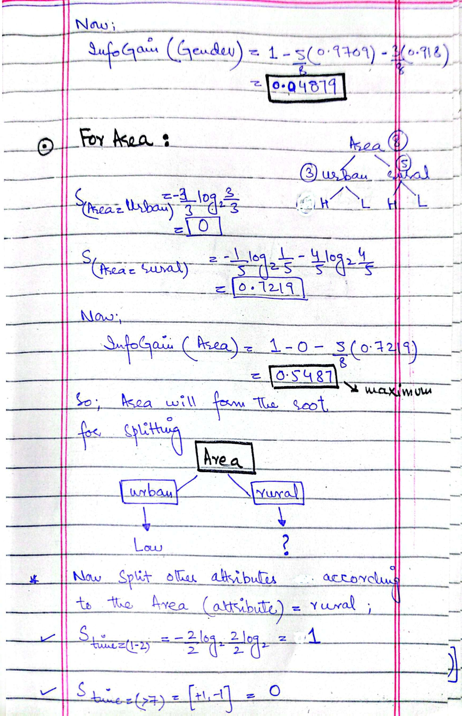 Now;
InfoGain (Gender) = 1 - 5/8 (0.9709) - 3/8 (0.918)
= 0.04879
For Area :
Area 8
3 urban 5 rural
H L H L
S(Area = Urban) = -3/3 log2 3/3
= 0
S(Area = rural) = -1/5 log2 1/5 - 4/5 log2 4/5
= 0.7219
Now;
InfoGain (Area) = 1 - 0 - 5/8 (0.7219)
= 0.5487 → maximum
So; Area will form the root
for splitting
Area
urban rural
Low ?
* Now split other attributes according
to the Area (attribute) = rural;
✓ S time=(1-2) = -2/2 log2 2/2 log2 = 1
✓ S time=(>7) = [+1,-1] = 0